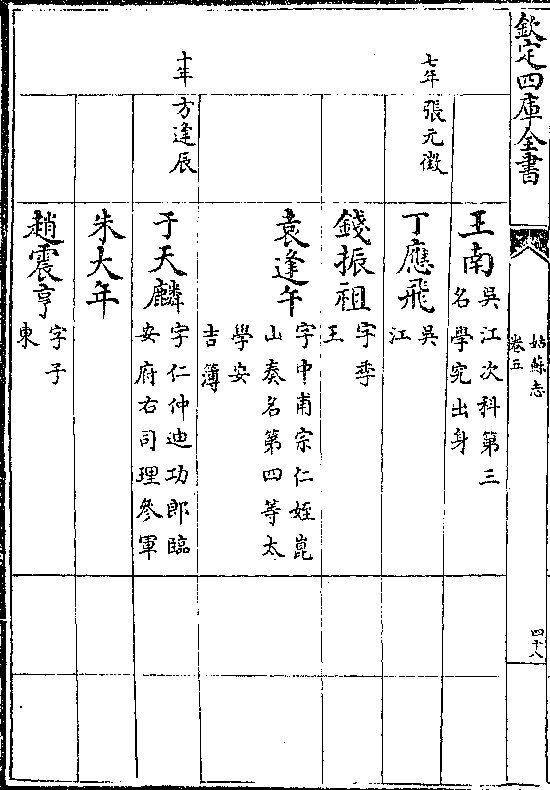 欽定四庫全書
姑蘇志
卷五
四十八
王南 吳江次科第三
名學究出身
七年 張元徵
丁應飛 吳
江
錢振祖 字季
王
袁逢午 字中甫宗仁姪崑
山奏名第四等太
學安
吉簿
十年 方逢辰
于天麟 字仁仲迪功郎臨
安府右司理參軍
朱大年
趙震亨 字子
東